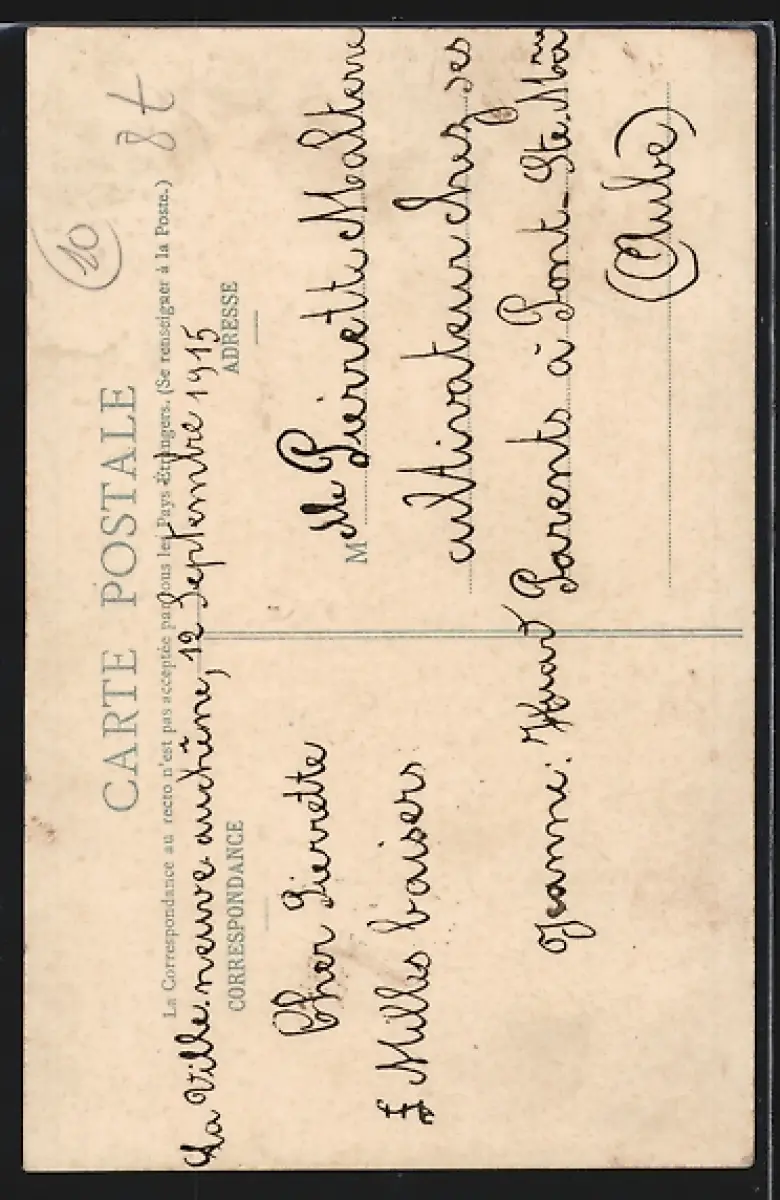 8t
10
CARTE POSTALE
La Correspondance au recto n'est pas acceptée par tous les Pays Étrangers. (Se renseigner à la Poste.)
La Ville neuve au chêne, 12 Septembre 1915
CORRESPONDANCE
Cher Pierrette
Milles baisers
Jeanne: Huard
ADRESSE
Melle Pierrette Malterre
cultivateur chez ses
Parents à Pont-Ste-Marie
(Aube)